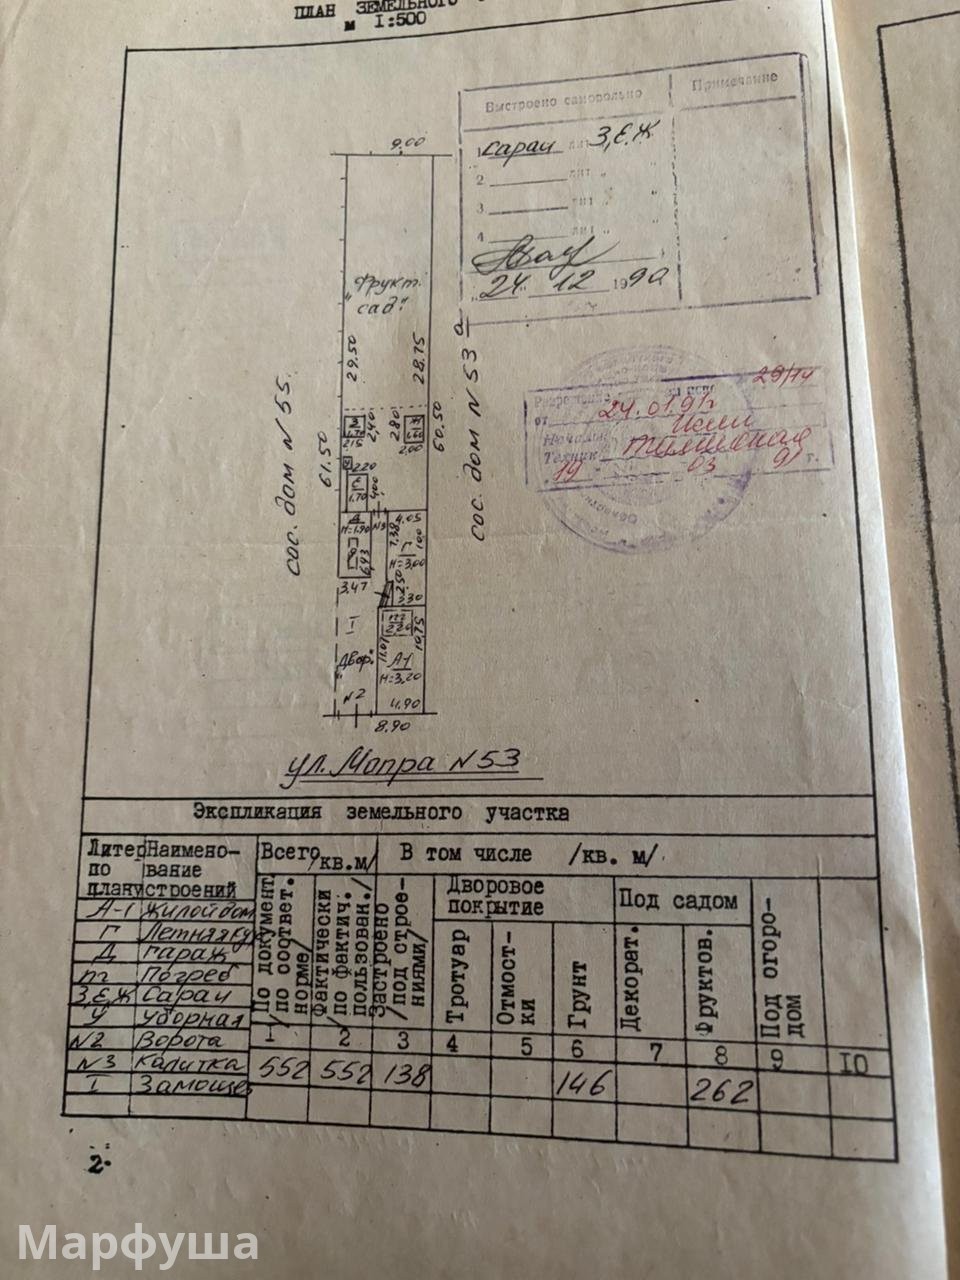 ПЛАН ЗЕМЕЛЬНОГО
м I:500
Выстроено самовольно
Примечание
1 сарай лит З,Е,Ж
2 лит "
3 лит "
4 лит "
"24" 12 1990
9.00
"Фрукт. сад"
29.50
28.75
сос. дом N 55.
сос. дом N 53 а
61.50
60.50
29/14
от 24.01.91г
Техник
19 03 91 г.
2,40
2.80
2.15
2,00
У
2.20
1.70
4.00
Д
Н=1.90
N3
4.05
7.38
Г
Н=3,00
6,93
3.47
2.50
3.30
I
2.20
"Двор"
11.07
10,75
А-1
Н=3,20
N2
4.90
8.90
ул. Мопра N 53
Экспликация земельного участка
Литер по плану
Наимено-вание строений
Всего /кв.м/
В том числе /кв. м/
По документ. /по соответ. норме/
Фактически /по фактич. пользован./
Застроено /под строе-ниями/
Дворовое покрытие
Под садом
Под огоро-дом
Тротуар
Отмост-ки
Грунт
Декорат.
Фруктов.
1 2 3 4 5 6 7 8 9 10
А-1 Жилой дом
Г Летняя кух
Д гараж
п Погреб
З,Е,Ж Сарай
У Уборная
N2 Ворота
N3 Калитка
I Замоще
552 552 138 146 262
2.
Марфуша